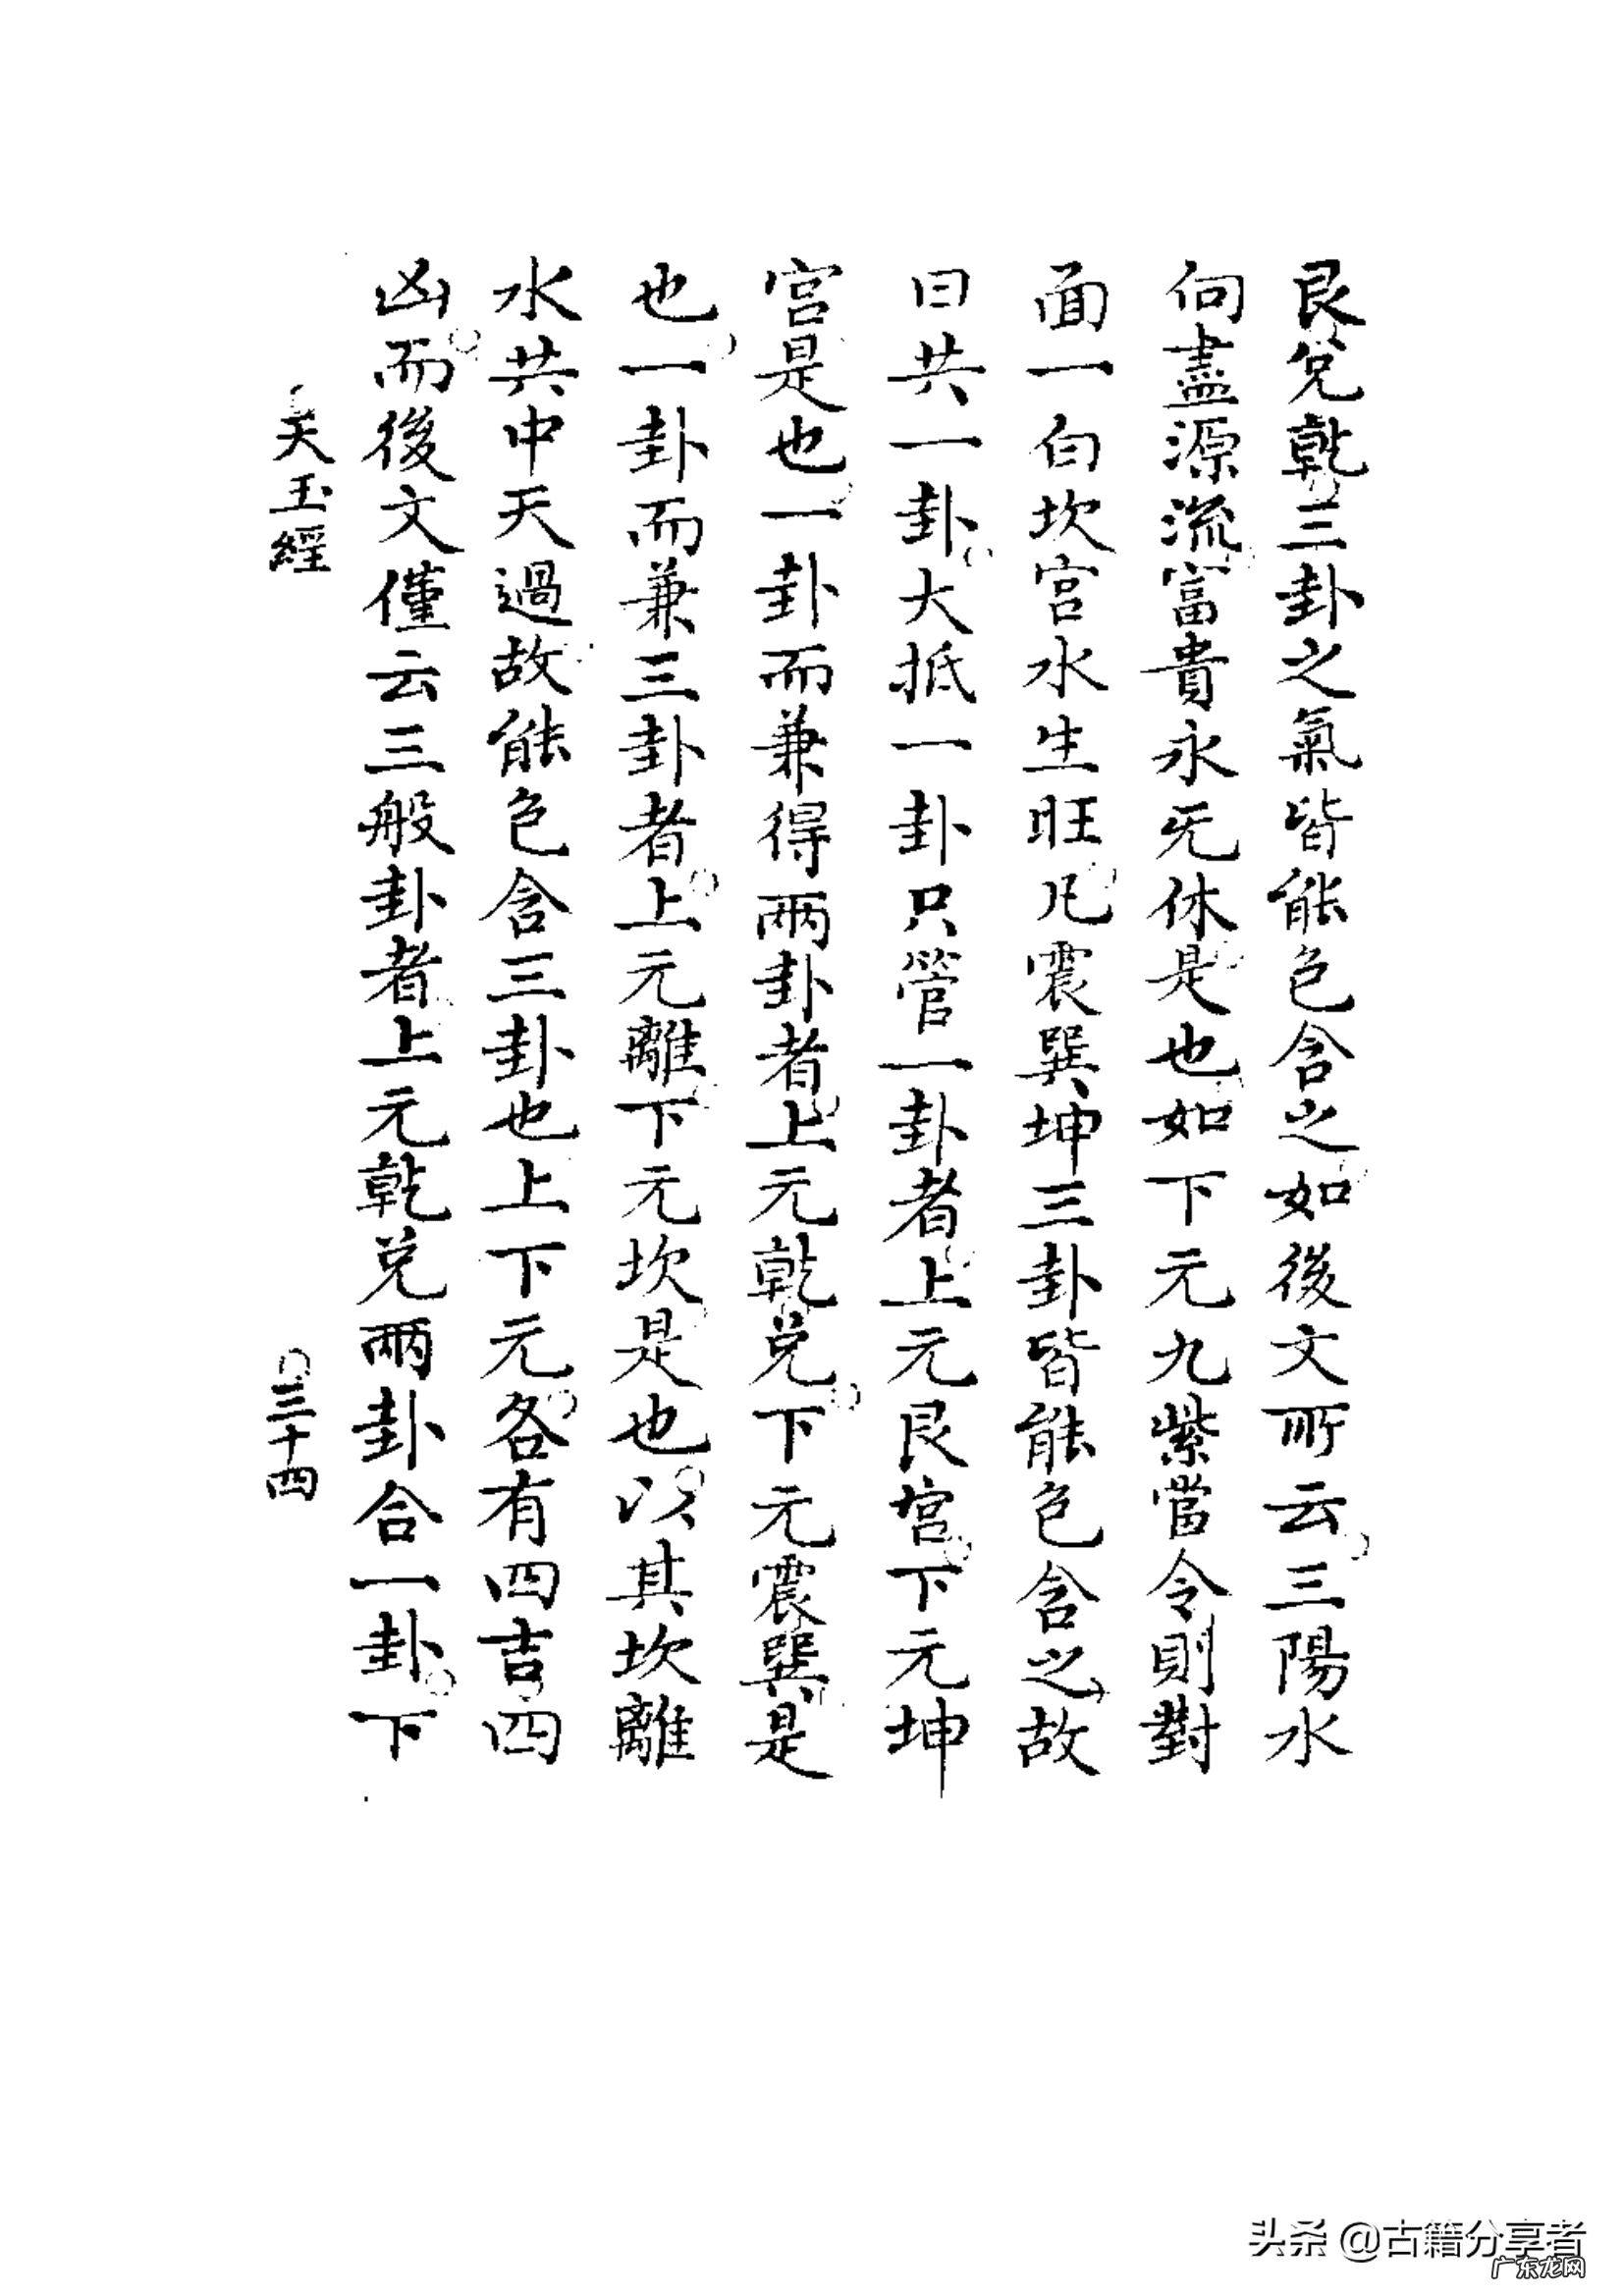 艮兌乾三卦之氣皆能包含之如後文所云三陽水
向盡源流富貴永无休是也如下元九紫當令則對
面一白坎宮水生旺凡震巽坤三卦皆能包含之故
曰共一卦大抵一卦只管一卦者上元艮宮下元坤
宮是也一卦而兼得兩卦者上元乾兌下元震巽是
也一卦而兼三卦者上元離下元坎是也以其坎離
水共中天過故能包含三卦也上下元各有四吉四
凶而後文僅云三般卦者上元乾兌兩卦合一卦下
天玉經
三十四
头条 @古籍分享者
广东龙网